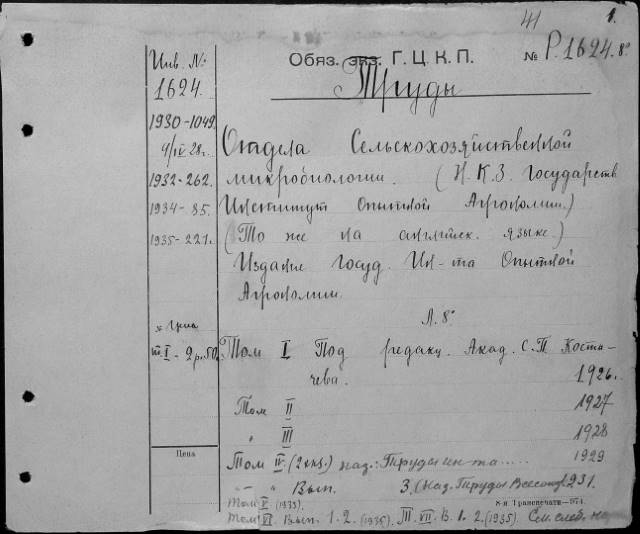 41
1.
Инв. №
Обяз. экз. Г. Ц. К. П.
№ Р.1624.8°
1624.
Труды
1930-1049.
4/IV 28г.
Отдела Сельскохозяйственной
1932-262.
микробиологии. (Н. К. З. Государств
1934-85.
Институт Опытной Агрономии.)
1935-221.
(То же на английск. языке.)
Издание Госуд. Ин-та Опытной
Агрономии.
Л. 8°
Цена
т. I-2р.50.
Том I Под редакц. Акад. С. П. Коста-
чева. 1926.
Том II 1927
" III 1928
Цена
Том IV. (2 экз.) наз.: Труды ин-та..... 1929
-"- " Вып. 3. (Наз. Труды Всесоюз. 931.
Том V. (1933).
8-я Транспечати—974.
Том VI. Вып. 1. 2. (1935). III. VII. В. 1. 2. (1935). См. след.